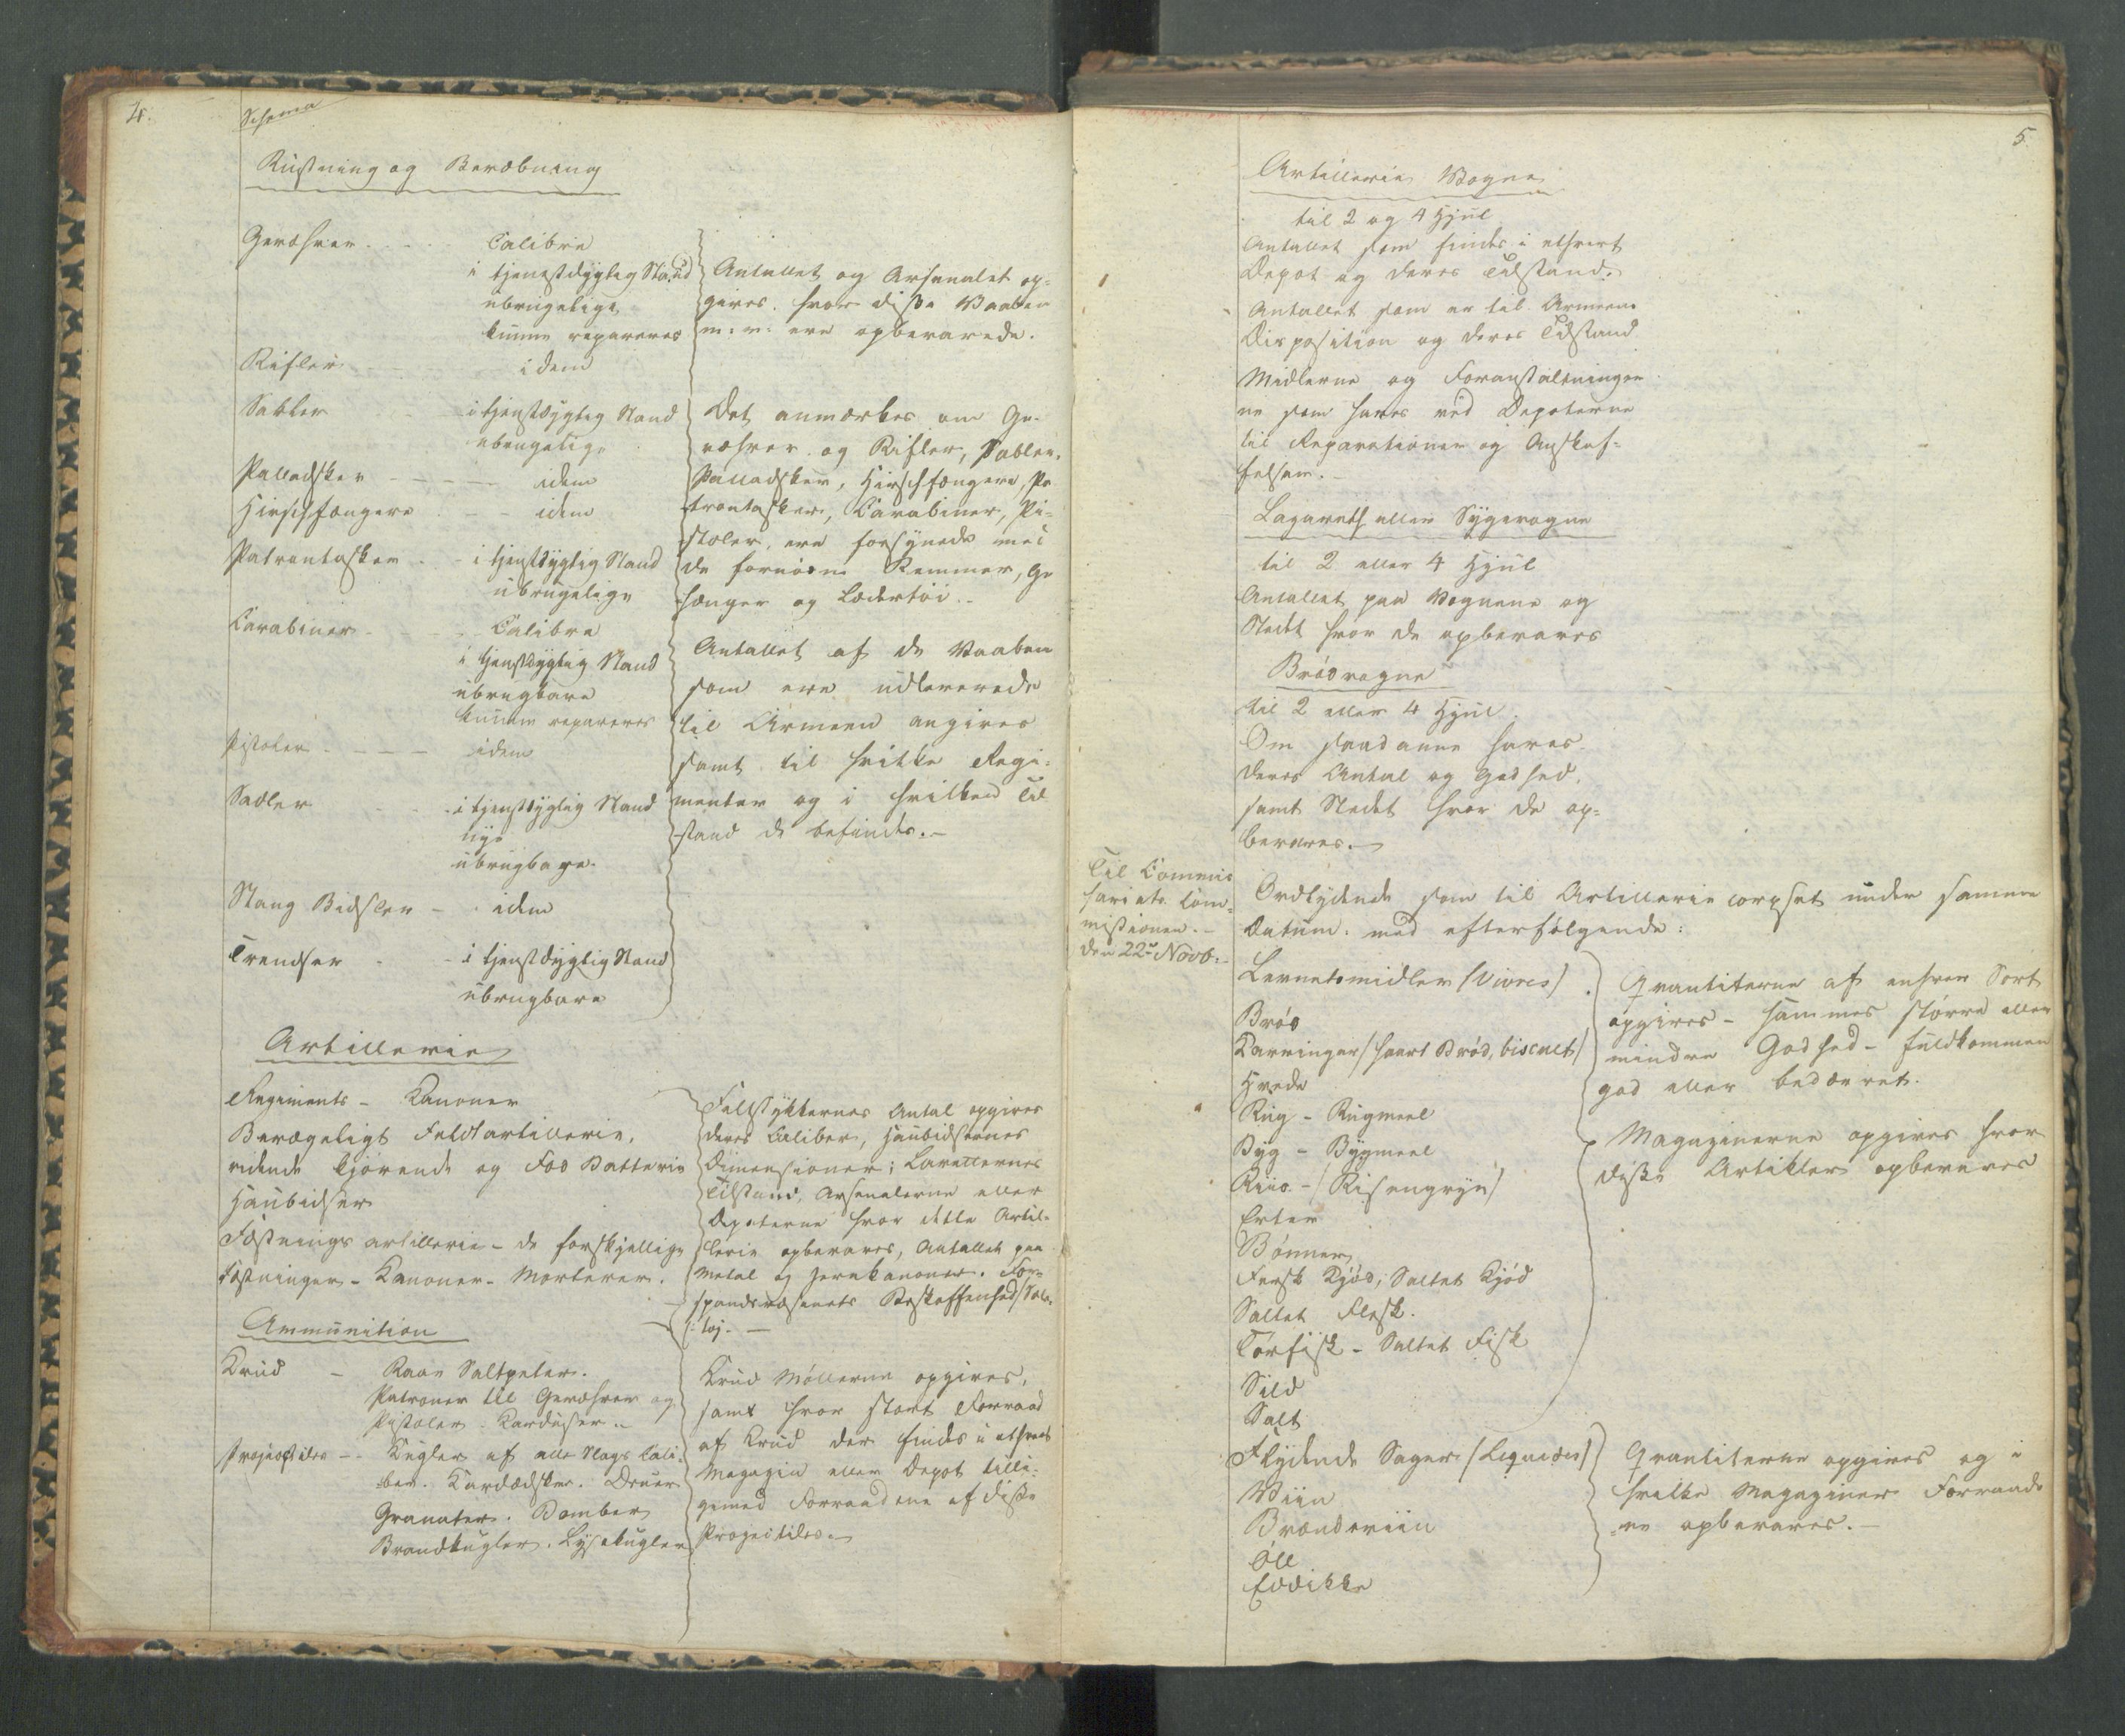 4.
Schema
Rustning og Bevæbning
Geværer Calibre
i tjenestdygtig Stand
ubrugelige
kunne repareres
Rifler idem
Sabler i tjenstdygtig Stand
ubrugelige
Palladsker idem
Hirschfængere idem
Patrontasker i tjenstdygtig Stand
ubrugelige
Carabiner Calibre
i tjenstdygtig Stand
ubrugbare
kunne repareres
Pistoler idem
Sadler i tjenstdygtig Stand
nye
ubrugbare
Stang Bidsler idem
Trendser i tjenstdygtig Stand
ubrugbare
Antallet og Arsenalet op-
gives. hvor disse Vaaben
m: v: ere opbevarede.
Det anmærkes om Ge-
værer og Rifler, Sabler,
Palladsker, Hirschfængere, Pa
trontasker, Carabiner, Pi-
stoler, ere forsynede med
de fornødne Remmer, Ge
hænger og Lædertøi.-
Antallet af de Vaaben
som ere udleverede
til Armeen angives
samt til hvilke Regi-
menter og i hvilken Til
stand de befindes.-
Artillerie
Regiments - Kanoner
Bevægeligt Feldtartillerie,
ridende kjørende og Fod Batterie
Haubidser
Fæstnings artillerie - de forskjellige
Fæstninger - Kanoner - Morterer.
Feltstykkernes Antal opgives
deres Caliber, Haubidsernes
Dimensioner; Lavetternes
Tilstand, Arsenalerne eller
Depoterne hvor dette Artil-
lerie opbevares, Antallet paa
Metal og Jernkanoner. For-
spandsvæsenets Beskaffenhed /Sele-
tøj. -
Ammunition
Krud - Raae Saltpeter.
Patroner til Geværer og
Pistoler. Karduser.
Projectiler - Kugler af alle Slags Cali-
ber. Kardædsker. Druer
Granater. Bomber
Brandkugler. Lysekugler
Krud Møllerne opgives,
samt hvor stort Forraad
af Krud der findes i ethvert
Magazin eller Depot tilli-
gemed Forraadene af disse
Projectiler.-
5.
Artillerie Vogne
til 2 og 4 Hjul
Antallet som findes i ethvert
Depot og deres Tilstand.
Antallet som er til Armeens
Disposition og deres Tilstand
Midlerne og Foranstaltninger
ne som haves ved Depoterne
til Reparationer og Anskaf-
felser.
Lazareth eller Sygevogne
til 2 eller 4 Hjul
Antallet paa Vognene og
Stedet hvor de opbevares
Brødvogne
til 2 eller 4 Hjul.
Om saadanne haves
deres Antal og Godhed,
samt Stedet hvor de op-
bevares.-
Til Commis
sariats Com-
missionen.-
den 22de Novb:
Ordlydende som til Artillerie corpset under samme
Datum. med efterfølgende:
Levnetsmidler /Vivres/
Brød
Kavringer /haart Brød, biscuit/
Hvede
Rug - Rugmeel
Byg - Bygmeel
Riis - /Risengryn/
Erter
Bønner
Fersk Kjød, Saltet Kjød
Saltet Flesk.
Tørfisk - Saltet Fisk
Sild
Salt
Qvantiterne af enhver Sort
opgives - sammes større eller
mindre Godhed - fuldkommen
god eller bedærvet.
Magazinerne opgives hvor
disse Artikler opbevares
Flydende Sager /Liquides/
Viin
Brændeviin
Øll
Eddikke
Qvantiterne opgives og i
hvilke Magaziner Forraade
ne opbevares.-